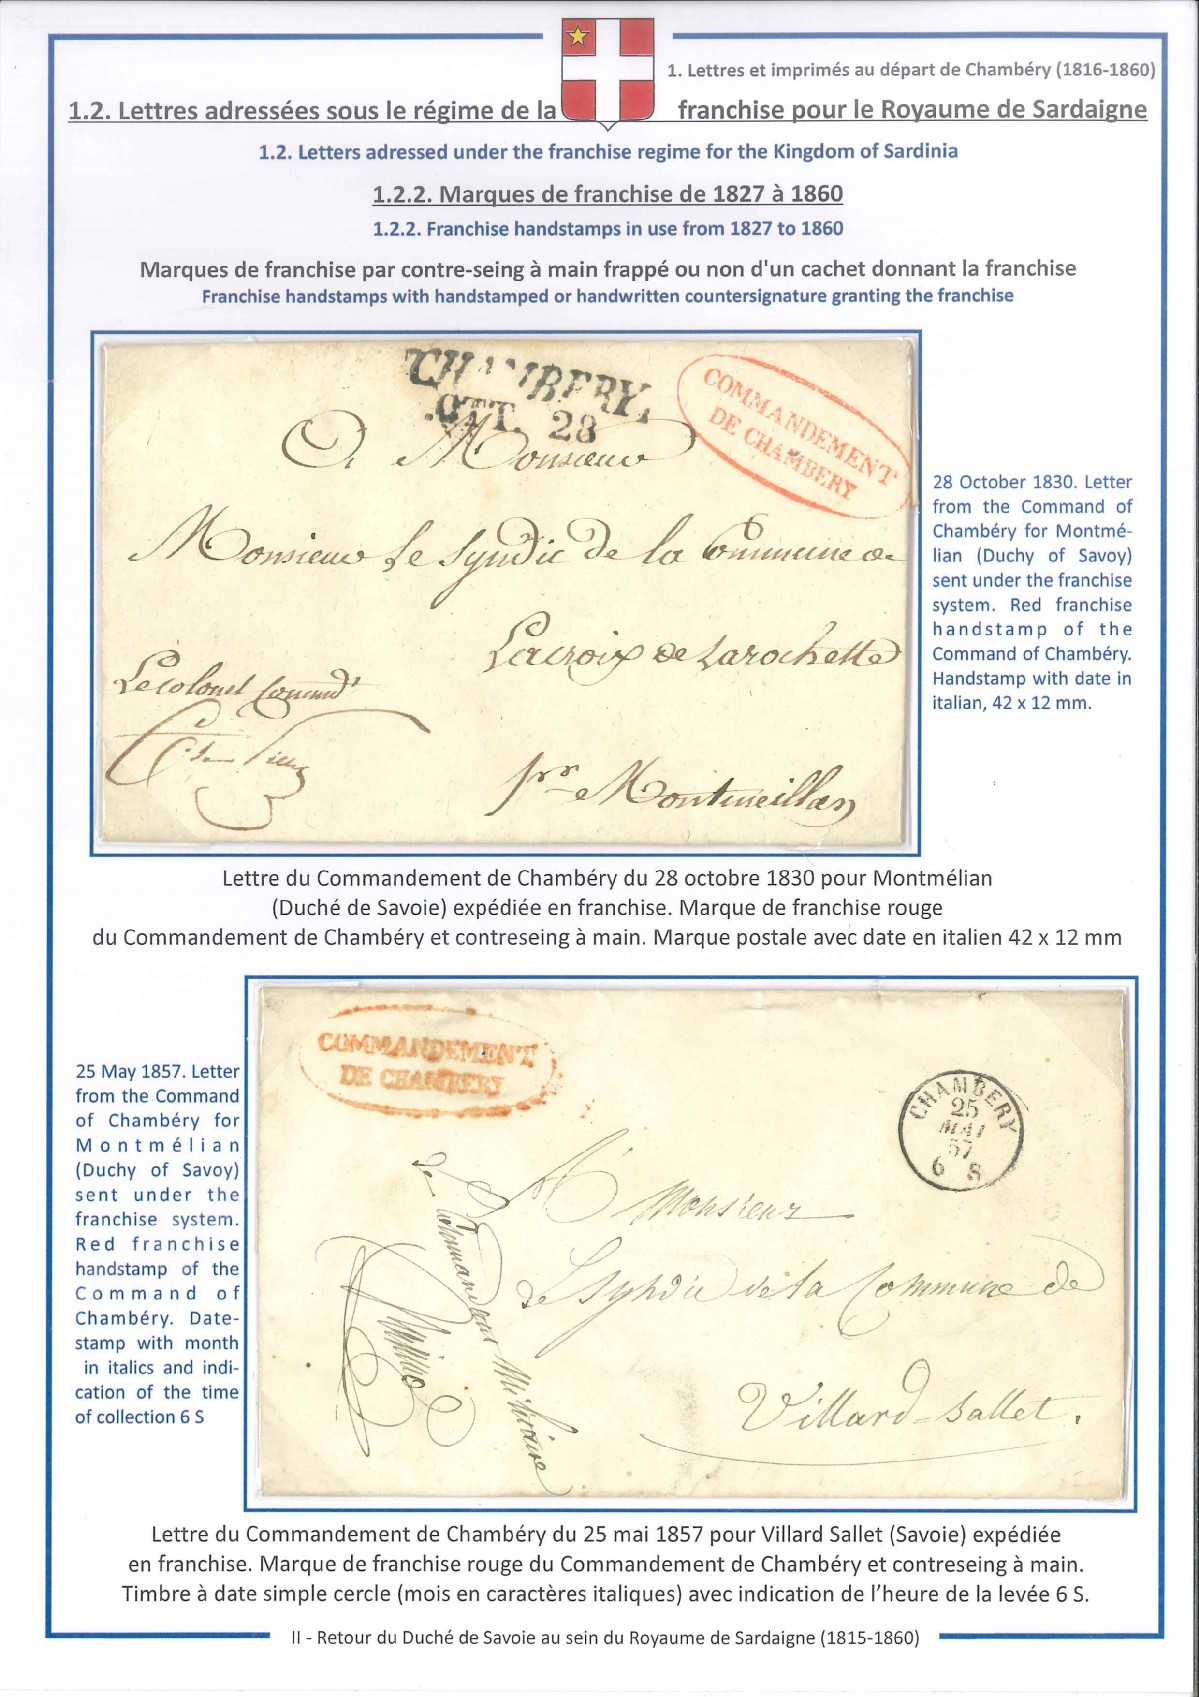 1. Lettres et imprimés au départ de Chambéry (1816-1860)
1.2. Lettres adressées sous le régime de la franchise pour le Royaume de Sardaigne
1.2. Letters adressed under the franchise regime for the Kingdom of Sardinia
1.2.2. Marques de franchise de 1827 à 1860
1.2.2. Franchise handstamps in use from 1827 to 1860
Marques de franchise par contre-seing à main frappé ou non d'un cachet donnant la franchise
Franchise handstamps with handstamped or handwritten countersignature granting the franchise
CHAMBERY.
.OTT. 28
COMMANDEMENT
DE CHAMBERY
A Monsieur
Monsieur Le Syndic de la Commune de
Lacroix de Larochette
Le Colonel Commdt
pr Montmeillan
28 October 1830. Letter
from the Command of
Chambéry for Montmé-
lian (Duchy of Savoy)
sent under the franchise
system. Red franchise
handstamp of the
Command of Chambéry.
Handstamp with date in
italian, 42 x 12 mm.
Lettre du Commandement de Chambéry du 28 octobre 1830 pour Montmélian
(Duché de Savoie) expédiée en franchise. Marque de franchise rouge
du Commandement de Chambéry et contreseing à main. Marque postale avec date en italien 42 x 12 mm
25 May 1857. Letter
from the Command
of Chambéry for
Montmélian
(Duchy of Savoy)
sent under the
franchise system.
Red franchise
handstamp of the
Command of
Chambéry. Date-
stamp with month
in italics and indi-
cation of the time
of collection 6 S
COMMANDEMENT
DE CHAMBERY
CHAMBERY
25
MAI
57
6 S
A Monsieur
Le Syndic de la Commune de
Villard-Sallet.
Commandant Militaire
Lettre du Commandement de Chambéry du 25 mai 1857 pour Villard Sallet (Savoie) expédiée
en franchise. Marque de franchise rouge du Commandement de Chambéry et contreseing à main.
Timbre à date simple cercle (mois en caractères italiques) avec indication de l'heure de la levée 6 S.
II - Retour du Duché de Savoie au sein du Royaume de Sardaigne (1815-1860)